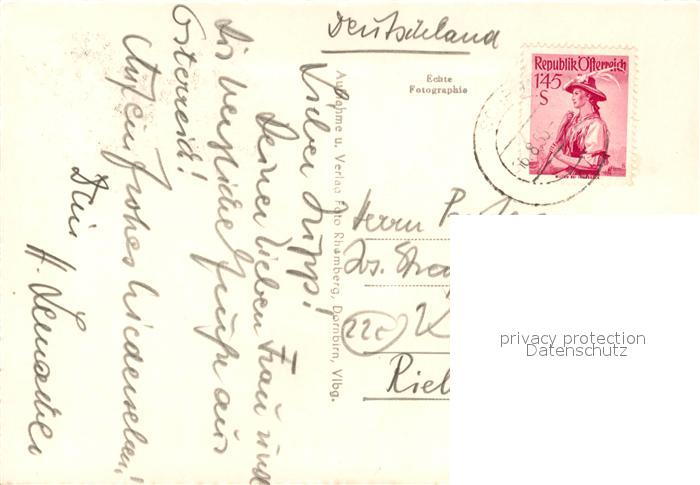 Deutschland
Echte
Fotographie
Republik Österreich
1'45
S
Aufnahme u. Verlag Foto Rhomberg, Dornbirn, Vlbg.
Lieber Jupp!
Deiner lieben Frau und
Dir herzliche Grüße aus
Österreich!
Auf ein frohes Wiedersehen!
Dein
H.
Herrn
Jos.
22c
privacy protection
Datenschutz